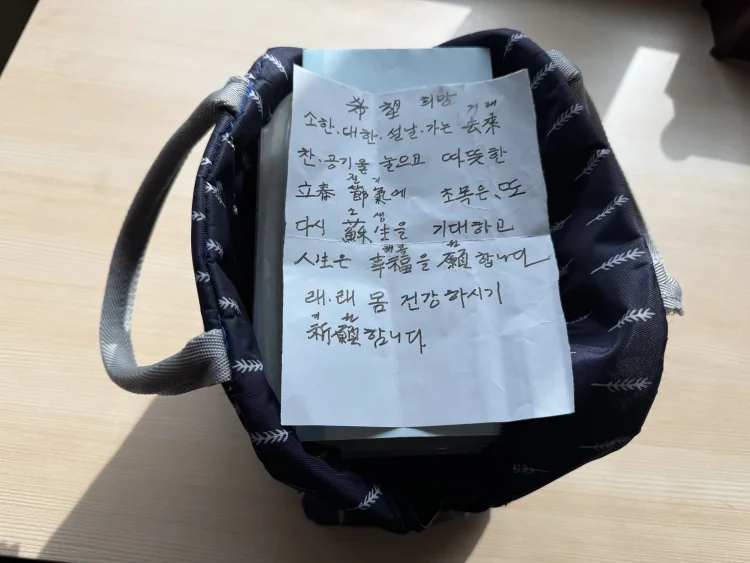 希望 희망
소한.대한.설날.가는 去來 거래
찬.공기을 놓으고 따뜻한
立春 節氣에 절기 초목은, 또
다시 蘇生을 소생 기대하고
人生은 幸福을 행복 願합니다 원
래.래 몸 건강하시기
祈願합니다. 기원